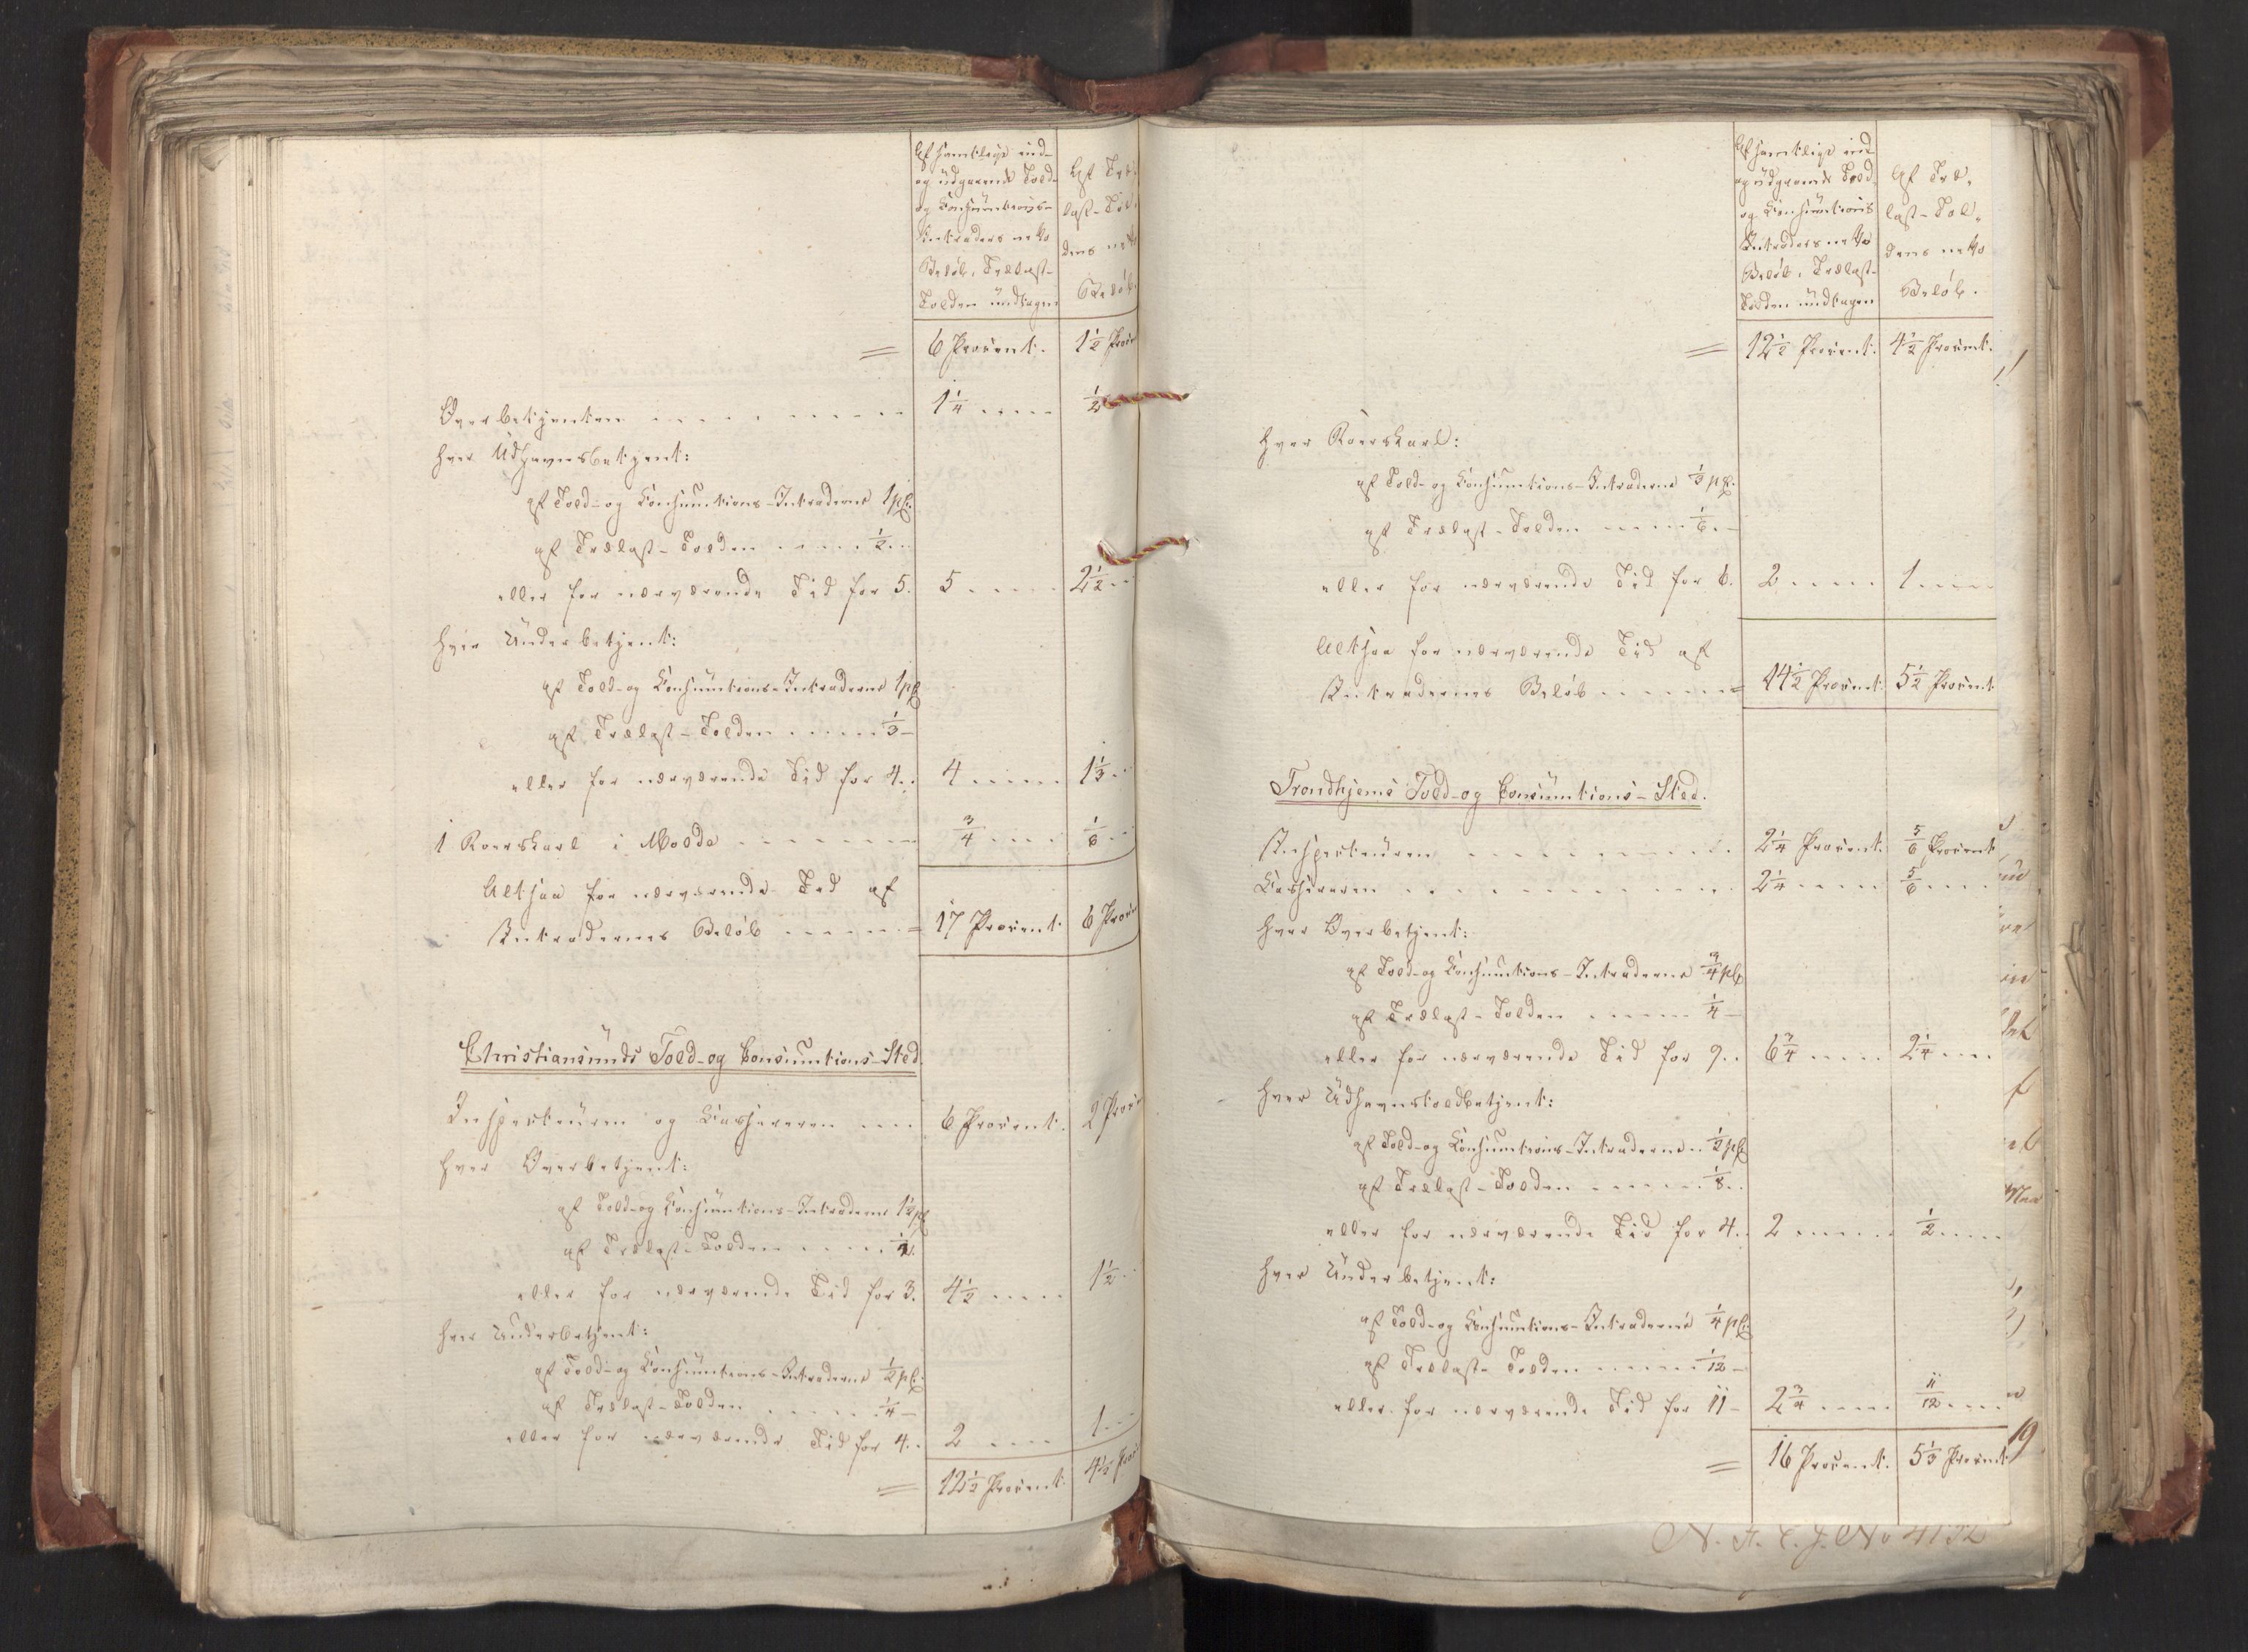 Af samtlige ind-
og udgaaende Told-
og Consumtions-
Intraders netto
Beløb, Trælast-
Tolden undtagen
Af Træ-
last-Tol-
dens netto
Beløb.
= 6 Procent. 1 1/2 Procent
Overbetjenten - - - - - - - 1 1/4 - - - - 1/2
Hver Udhavnsbetjent:
af Told- og Consumtions-Intraderne 1 pC.
af Trælast-Tolden - - - - 1/2 - -
eller for nærværende Tid for 5. 5 - - - - 2 1/2 - -
Hver Underbetjent:
af Told- og Consumtions-Intraderne 1 pC.
af Trælast-Tolden - - - - 1/3 -
eller for nærværende Tid for 4. 4 - - - - 1 1/3 - -
1 Roerskarl i Molde - - - - - - - 3/4 - - - - 1/6 - -
Altsaa for nærværende Tid af
Intradernes Beløb - - - - - = 17 Procent. 6 Procent
Christiansunds Told- og Consumtions-Sted.
Inspecteuren og Cassereren - - - 6 Procent. 2 Procent
Hver Overbetjent:
af Told- og Consumtions-Intraderne 1 1/2 pC.
af Trælast-Tolden - - - - 1/2.
eller for nærværende Tid for 3. 4 1/2 - - - - 1 1/2 - -
Hver Underbetjent:
af Told- og Consumtions-Intraderne 1/2 pC.
af Trælast-Tolden - - - - - 1/4 -
eller for nærværende Tid for 4. 2 - - - - 1 - -
= 12 1/2 Procent. 4 1/2 Procent
Af samtlige ind-
og udgaaende Told-
og Consumtions
Intraders netto
Beløb, Trælast-
Tolden undtagen
Af Træ-
last-Tol-
dens netto
Beløb.
= 12 1/2 Procent. 4 1/2 Procent.
Hver Roerskarl:
af Told- og Consumtions-Intraderne 1/3 pC.
af Trælast-Tolden - - - - 1/6. -
eller for nærværende Tid for 6. 2 - - - - 1 - - - -
Altsaa for nærværende Tid af
Intradernes Beløb - - - - - = 14 1/2 Procent. 5 1/2 Procent
Trondhjems Told- og Consumtions-Sted.
Inspecteuren - - - - - - - - - 2 1/4 Procent. 5/6 Procent
Cassereren - - - - - - - - - - 2 1/4 - - - - 5/6 - - - -
Hver Overbetjent:
af Told- og Consumtions-Intraderne 3/4 pC.
af Trælast-Tolden - - - - - 1/4 -
eller for nærværende Tid for 9. 6 3/4 - - - - 2 1/4 - - -
Hver Udhavnstoldbetjent:
af Told- og Consumtions-Intraderne 1/2 pC.
af Trælast-Tolden - - - - - 1/8. -
eller for nærværende Tid for 4. 2 - - - - 1/2 - - - -
Hver Underbetjent:
af Told- og Consumtions-Intraderne 1/4 pC.
af Trælast-Tolden - - - - 1/12 -
eller for nærværende Tid for 11 - 2 3/4 - - - - 11/12 - - -
= 16 Procent. 5 1/3 Procent